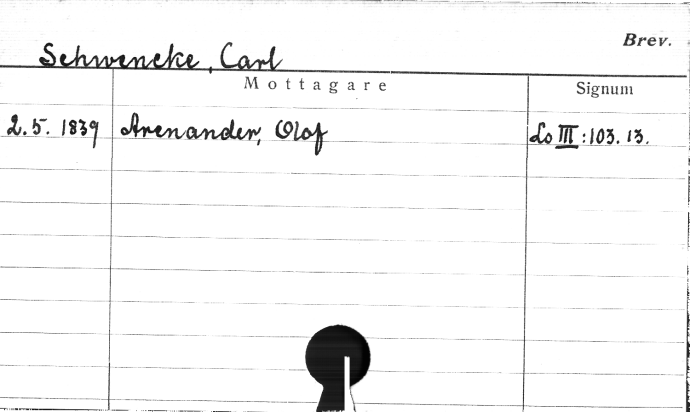 Brev.
Schwencke, Carl
Mottagare Signum
2.5. 1839 Arenander, Olof Lo III:103.13.